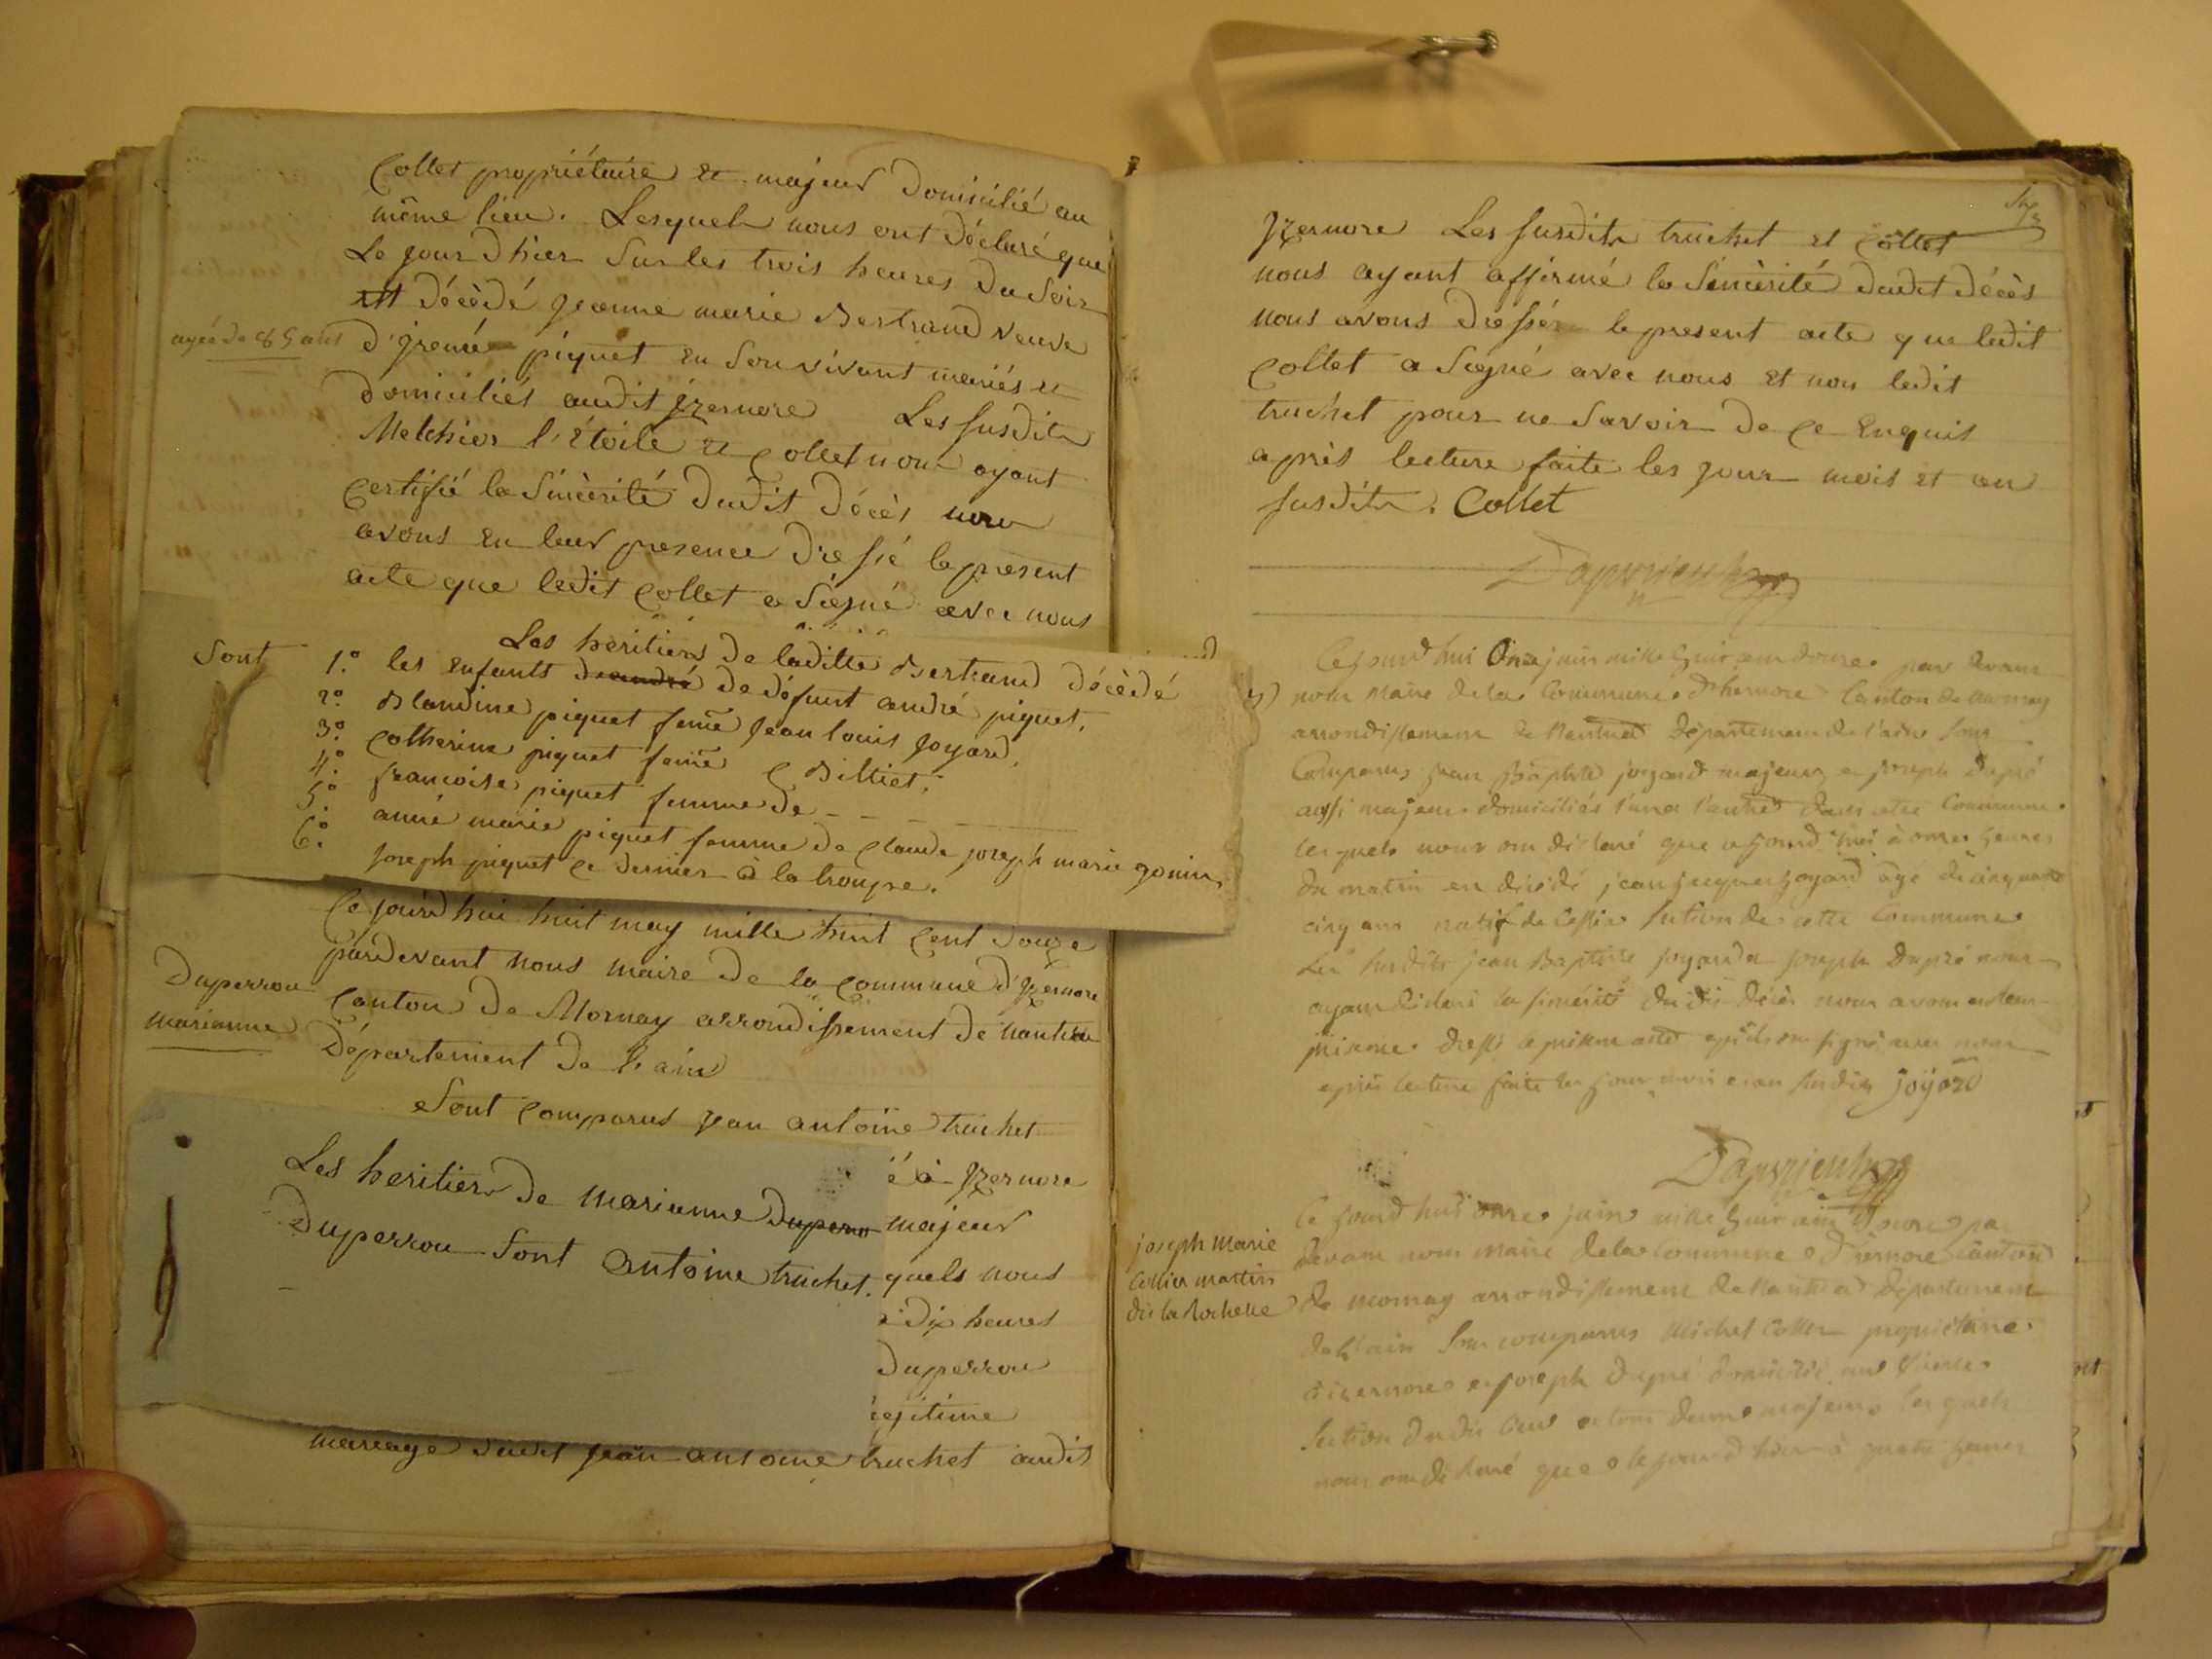 Collet propriétaire et majeur domicilié au
même lieu. Lesquels nous ont déclaré que
Le jour d'hier sur les trois heures du soir
est décèdé jeanne marie Bertrand veuve
agée de 85 ans
d'jrenée piquet en son vivant mariés et
domiciliés audit jzernore Les susdits
Melchior l'étoile et Collet nous ayant
certifié la sincèrité dudit décès nous
avons en leur presence dressé le present
acte que ledit Collet a signé avec nous
Les heritiers de laditte Bertrand décèdé
Sont
1.° les enfants de défunt andré piquet.
2.° Blandine piquet feme jean louis joyard.
3.° Catherine piquet feme C Billiet.
4.° françoise piquet femme de
5.° anne marie piquet femme de Claude joseph marie gonin
6.° joseph piquet ce dernier à la troupe.
Ce jourd'hui huit may mille huit cent douze
pardevant nous maire de la commune d'jzernore
Duperrou
marianne
Canton de Mornay arrondissement de nantua
Département de l'ain
Sont comparus jean antoine truchet
Les heritiers de marianne dupero
Duperrou Sont antoine truchet.
é à jzernore
majeur
quels nous
dix heures
Duperrou
egitime
mariage dudit jean antoine truchet audit
jzernore Les susdits truchet et Collet
nous ayant affirmé la sincèrité dudit décès
nous avons dressé le present acte que ledit
Collet a signé avec nous et non ledit
truchet pour ne savoir de ce enquis
après lecture faite les jour mois et an
susdits. Collet
Cejourd'hui Onze juin mille huit cent douze par devant
nous Maire de la Commune d'hernore Canton de mornay
arrondissement de Nantua Département de l'ain sont
Comparus jean Baptiste joyard majeur et joseph Dupré
aussi majeur domiciliés l'un et l'autre dans cette Commune
lesquels nous ont déclaré que cejourd'hui à onze heures
du matin est décédé jean jacques joyard agé de cinquante
cinq ans natif de section de cette Commune
Les susdits jean Baptiste joyard et joseph Dupré nous
ayant déclaré la sincérité dudit décès nous avons en leur
présence dressé le présent acte qu'ils ont signé avec nous
après lecture faite les jour mois et an susdits joyard
Ce jourd'hui onze juin mille huit cent Douze par
joseph Marie
Collier martin
dit la Rochelle
devant nous maire de la commune d'izernore canton
de mornay arrondissement de Nantua département
de l'ain sont comparus Michel Collet propriétaire
d'izernore et joseph Dupré domicilié au
section dudit lieu et tous deux majeurs lesquels
nous ont déclaré que le jour d'hier à quatre heures